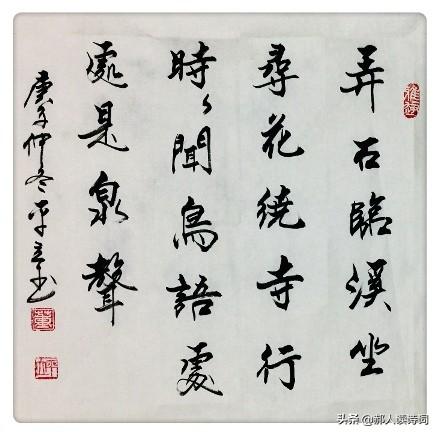 弄石臨溪坐
尋花繞寺行
時々聞鳥語處
處是泉聲
庚子仲冬
头条 @郝人读诗词